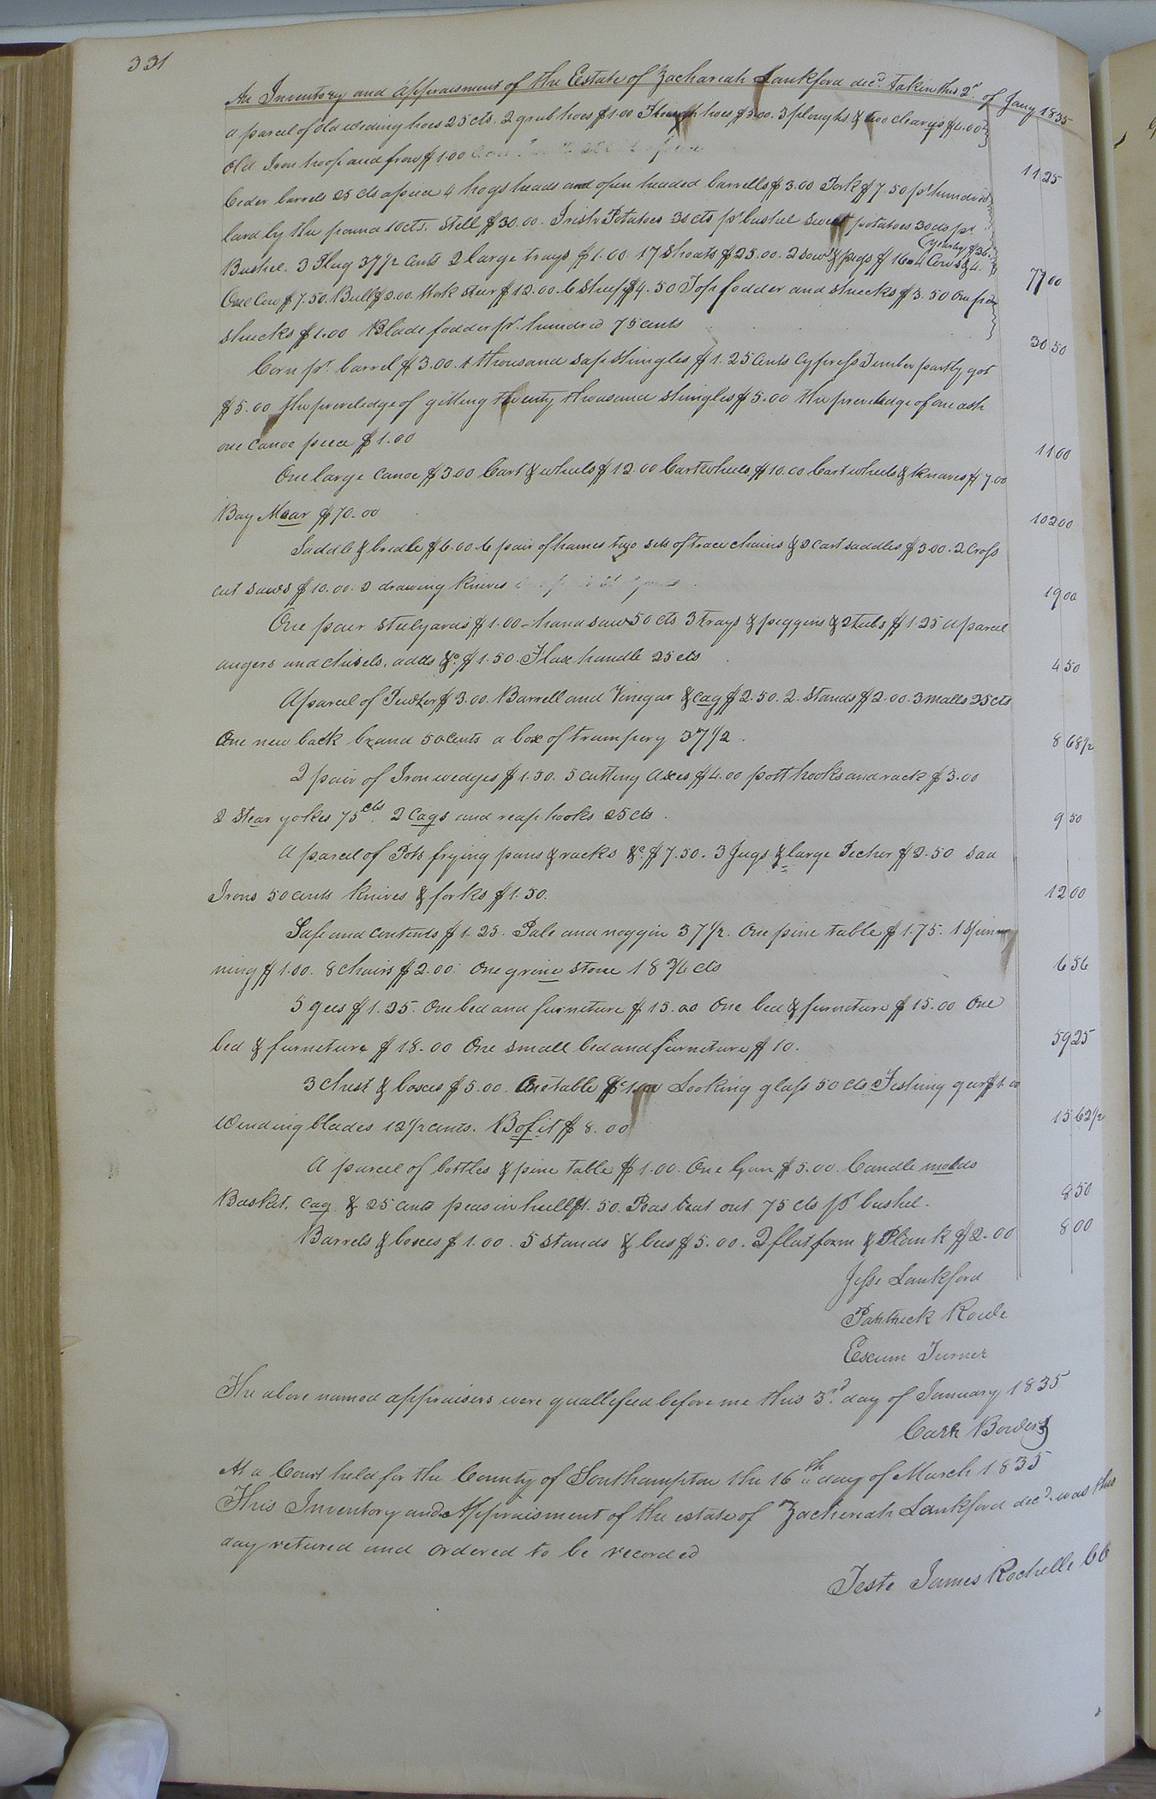 331
An Inventory and Appraisment of the Estate of Zachariah Lankford decd. taken this 2d. of Jany 1835
A parcel of old weding hoes 25 cts. 2 grub hoes $1.00 hoes $3.00. 3 ploughs & two clearys $4.00
Old Iron hoop and frow $1.00 11 25
Ceder barrels 25 cts apiece 4 hogs heads and open headed barrells $3.00 Pork $7.50 pr hundred
lard by the pound 10 cts. Still $30.00. Irish Potatoes 30 cts pr bushel Sweet potatoes 30 cts pr
Bushel. 3 Flag 37 1/2 Cents 2 large trays $1.00 17 Shoats $25.00. 2 sows & pigs $16 4 Cows & 77 00
One Cow $7.50. Bull $2.00. Work Steer $12.00. 6 Sheep $4.50 Top fodder and shucks $3.50 One
shucks $1.00 Blade fodder pr. hundred 75 cents 30 50
Corn pr. barrel $3.00. 1 thousand Sap Shingles $1.25 Cents Cypress Timber partly got
$5.00 the preveledge of gitting twenty thousand shingles $5.00 the preveledge of one ash
one Canoe piece $1.00 11 00
One large Canoe $3.00 Cart & wheels $12.00 Cartwheels $10.00 Cart wheels & knaves $7.00
Bay Mear $70.00 102 00
Saddle & bridle $6.00. 6 pair of hames two sets of trace chains & 2 Cart saddles $3.00. 2 Cross
cut Saws $10.00. 2 drawing knives 19 00
One pair stulyards $1.00 - hand saw 50 cts 3 trays & peggins & 2 tubs $1.25 a parcel
augers and chisels, adds &c. $1.50. Flax handle 25 cts 4 50
A parcel of Pewter $3.00. Barrell and Vinegar & cag $2.50. 2. Stands $2.00. 3 malls 25 cts
One new back brand 50 Cents a box of trumpery 37 1/2. 8 68 1/2
2 pair of Iron wedges $1.50. 5 cutting axes $4.00 pott hooks and rack $3.00
2 Stear yokes 75 cts. 2 Cags and reap hooks 25 cts. 9 50
A parcel of Pots frying pans & racks &c. $7.50. 3 Jugs & large Pecher $2.50 Sad
Irons 50 cents knives & forks $1.50. 12 00
Safe and contents $1.25. Pale and noggin 37 1/2. One pine table $1.75. 1 Spinn
ning $1.00. 8 Chairs $2.00. One grine stone 18 3/4 cts 6 56
5 gees $1.25. One bed and furneture $15.00 One bed & furneture $15.00 One
bed & furneture $18.00 One small bed and furneture $10. 59 25
3 Chest & boxes $5.00. One table Looking glass 50 cts Fishing gear $1.00
Winding blades 12 1/2 cents. Bofit $8.00 15 62 1/2
A parcel of bottles & pine table $1.00. One Gun $5.00. Candle molds
Basket, cag & 25 cents peas in hull $1.50. Peas beat out 75 cts pr bushel. 8 50
Barrels & boxes $1.00. 5 Stands & bees $5.00. 2 flat form & Plank $2.00 8 00
Jesse Lankford
Patrick
Exum Turner
The above named appraisers were quallefied before me this 3d. day of January 1835
Carr Bowers
At a Court held for the County of Southampton the 16th day of March 1835
This Inventory and Appraisment of the estate of Zachereah Lankford decd. was this
day retured and ordered to be recorded
Teste James Rochelle CC